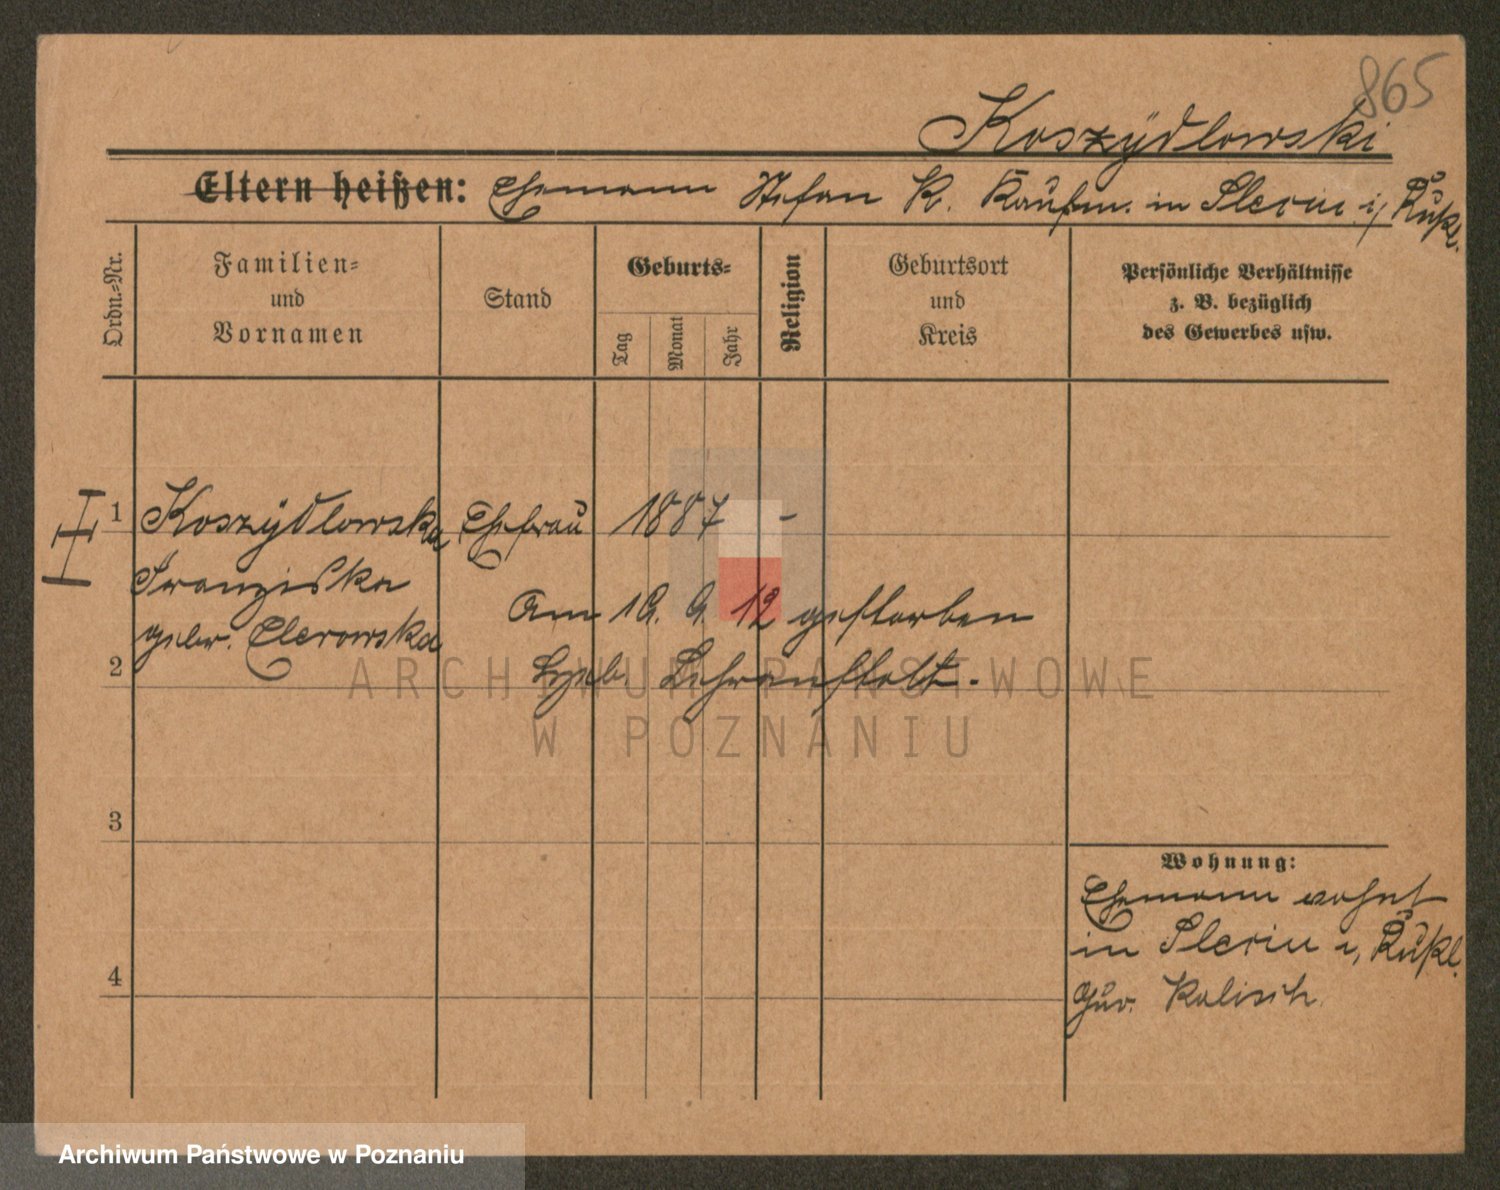 865
Koszÿdlowski
Eltern heißen: Ehemann Stefan K. Kaufm. in Slesin i/ Rußl.
Ordn.-Nr.
Familien-
und
Vornamen
Stand
Geburts-
Tag
Monat
Jahr
Religion
Geburtsort
und
Kreis
Persönliche Verhältnisse
z. B. bezüglich
des Gewerbes usw.
1 Koszÿdlowska Ehefrau 1887 -
Franziska
gebor.
Am 19. 9. 12 gestorben
Lehranstalt.
2
3
4
Wohnung:
Ehemann wohnt
in Slesin i, Rußl.
Guv. Kalisch.
ARCHIWUM PAŃSTWOWE
W POZNANIU
Archiwum Państwowe w Poznaniu